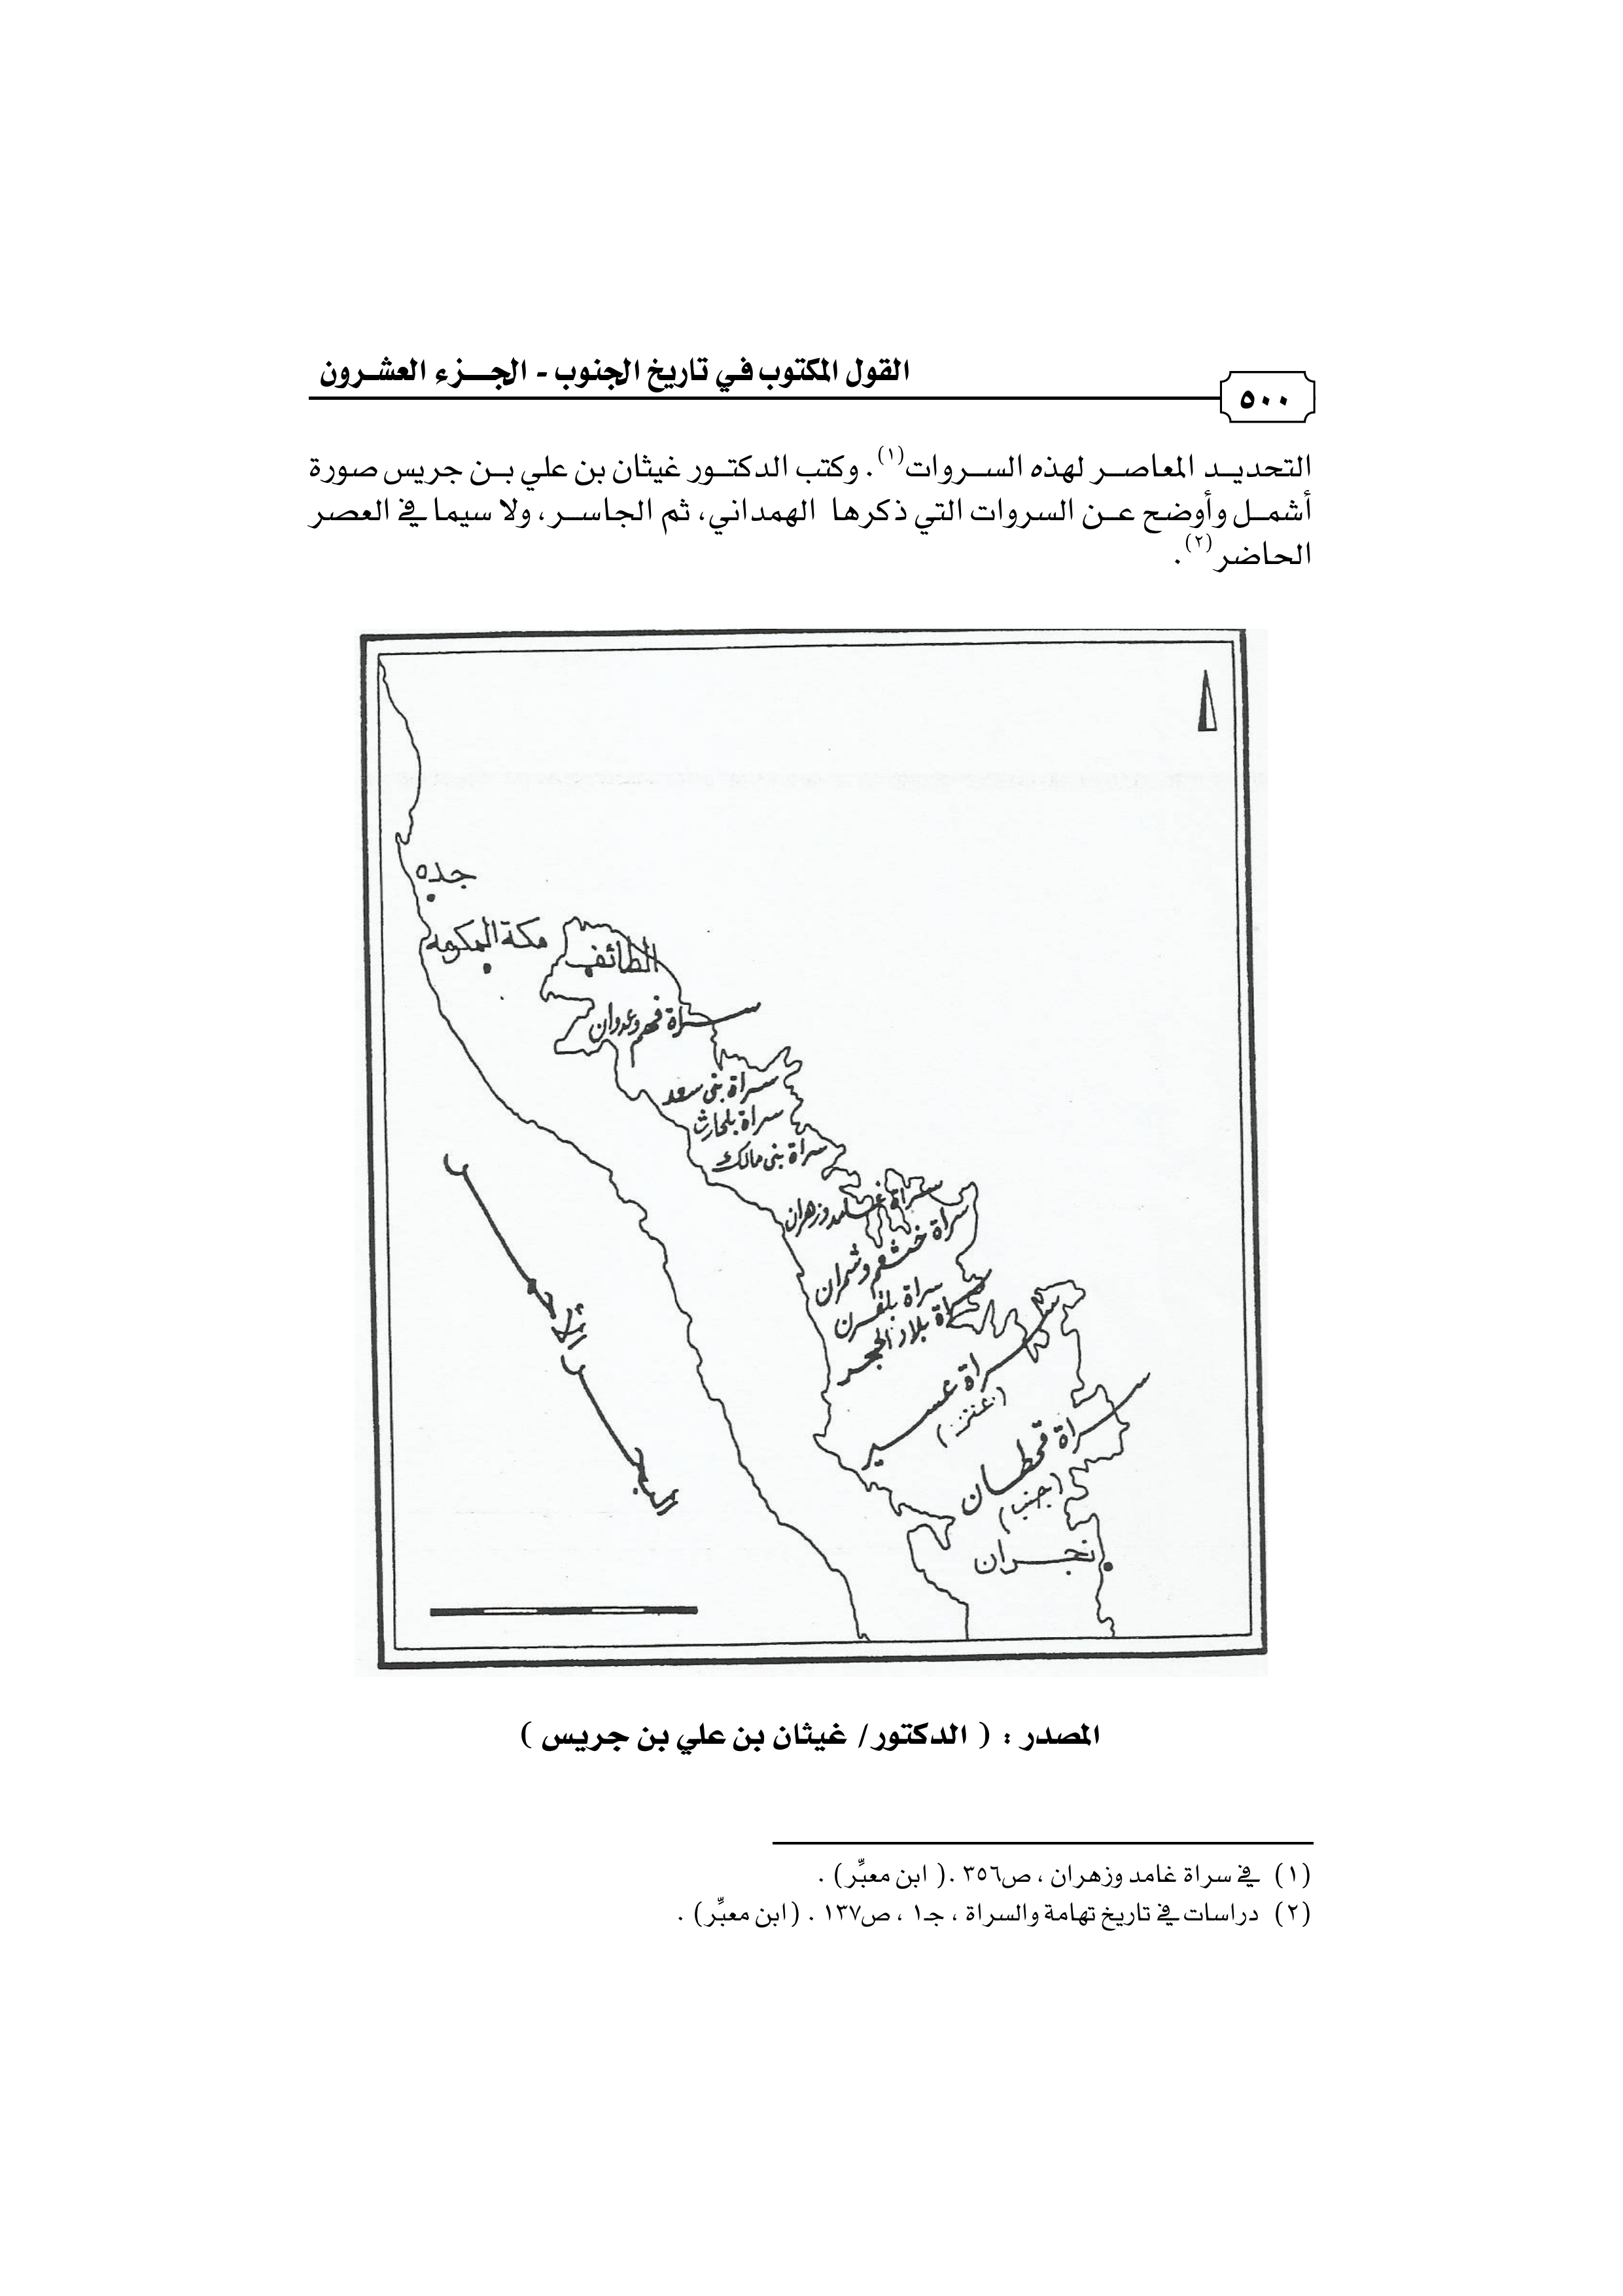 القول المكتوب في تاريخ الجنوب - الجـــزء العشـرون
٥٠٠
التحديـد المعاصـر لهذه السـروات(١). وكتب الدكتـور غيثان بن علي بـن جريس صورة
أشمـل وأوضح عـن السروات التي ذكرها الهمداني، ثم الجاسـر، ولا سيما في العصر
الحاضر(٢).
جده
مكة المكرمه
الطائف
سراة فهم وعدوان
سراة بني سعد
سراة بلحارث
سراة بني مالك
سراة غامد وزهران
سراة خثعم وشمران
سراة بلقرن
سراة بلاد الحجر
سراة عسير
(عنز)
سراة قحطان
(جنب)
نجران
البحر الأحمر
المصدر : ( الدكتور/ غيثان بن علي بن جريس )
(١) في سراة غامد وزهران ، ص٣٥٦ .( ابن معبِّر) .
(٢) دراسات في تاريخ تهامة والسراة ، جـ١ ، ص١٣٧ . (ابن معبِّر) .